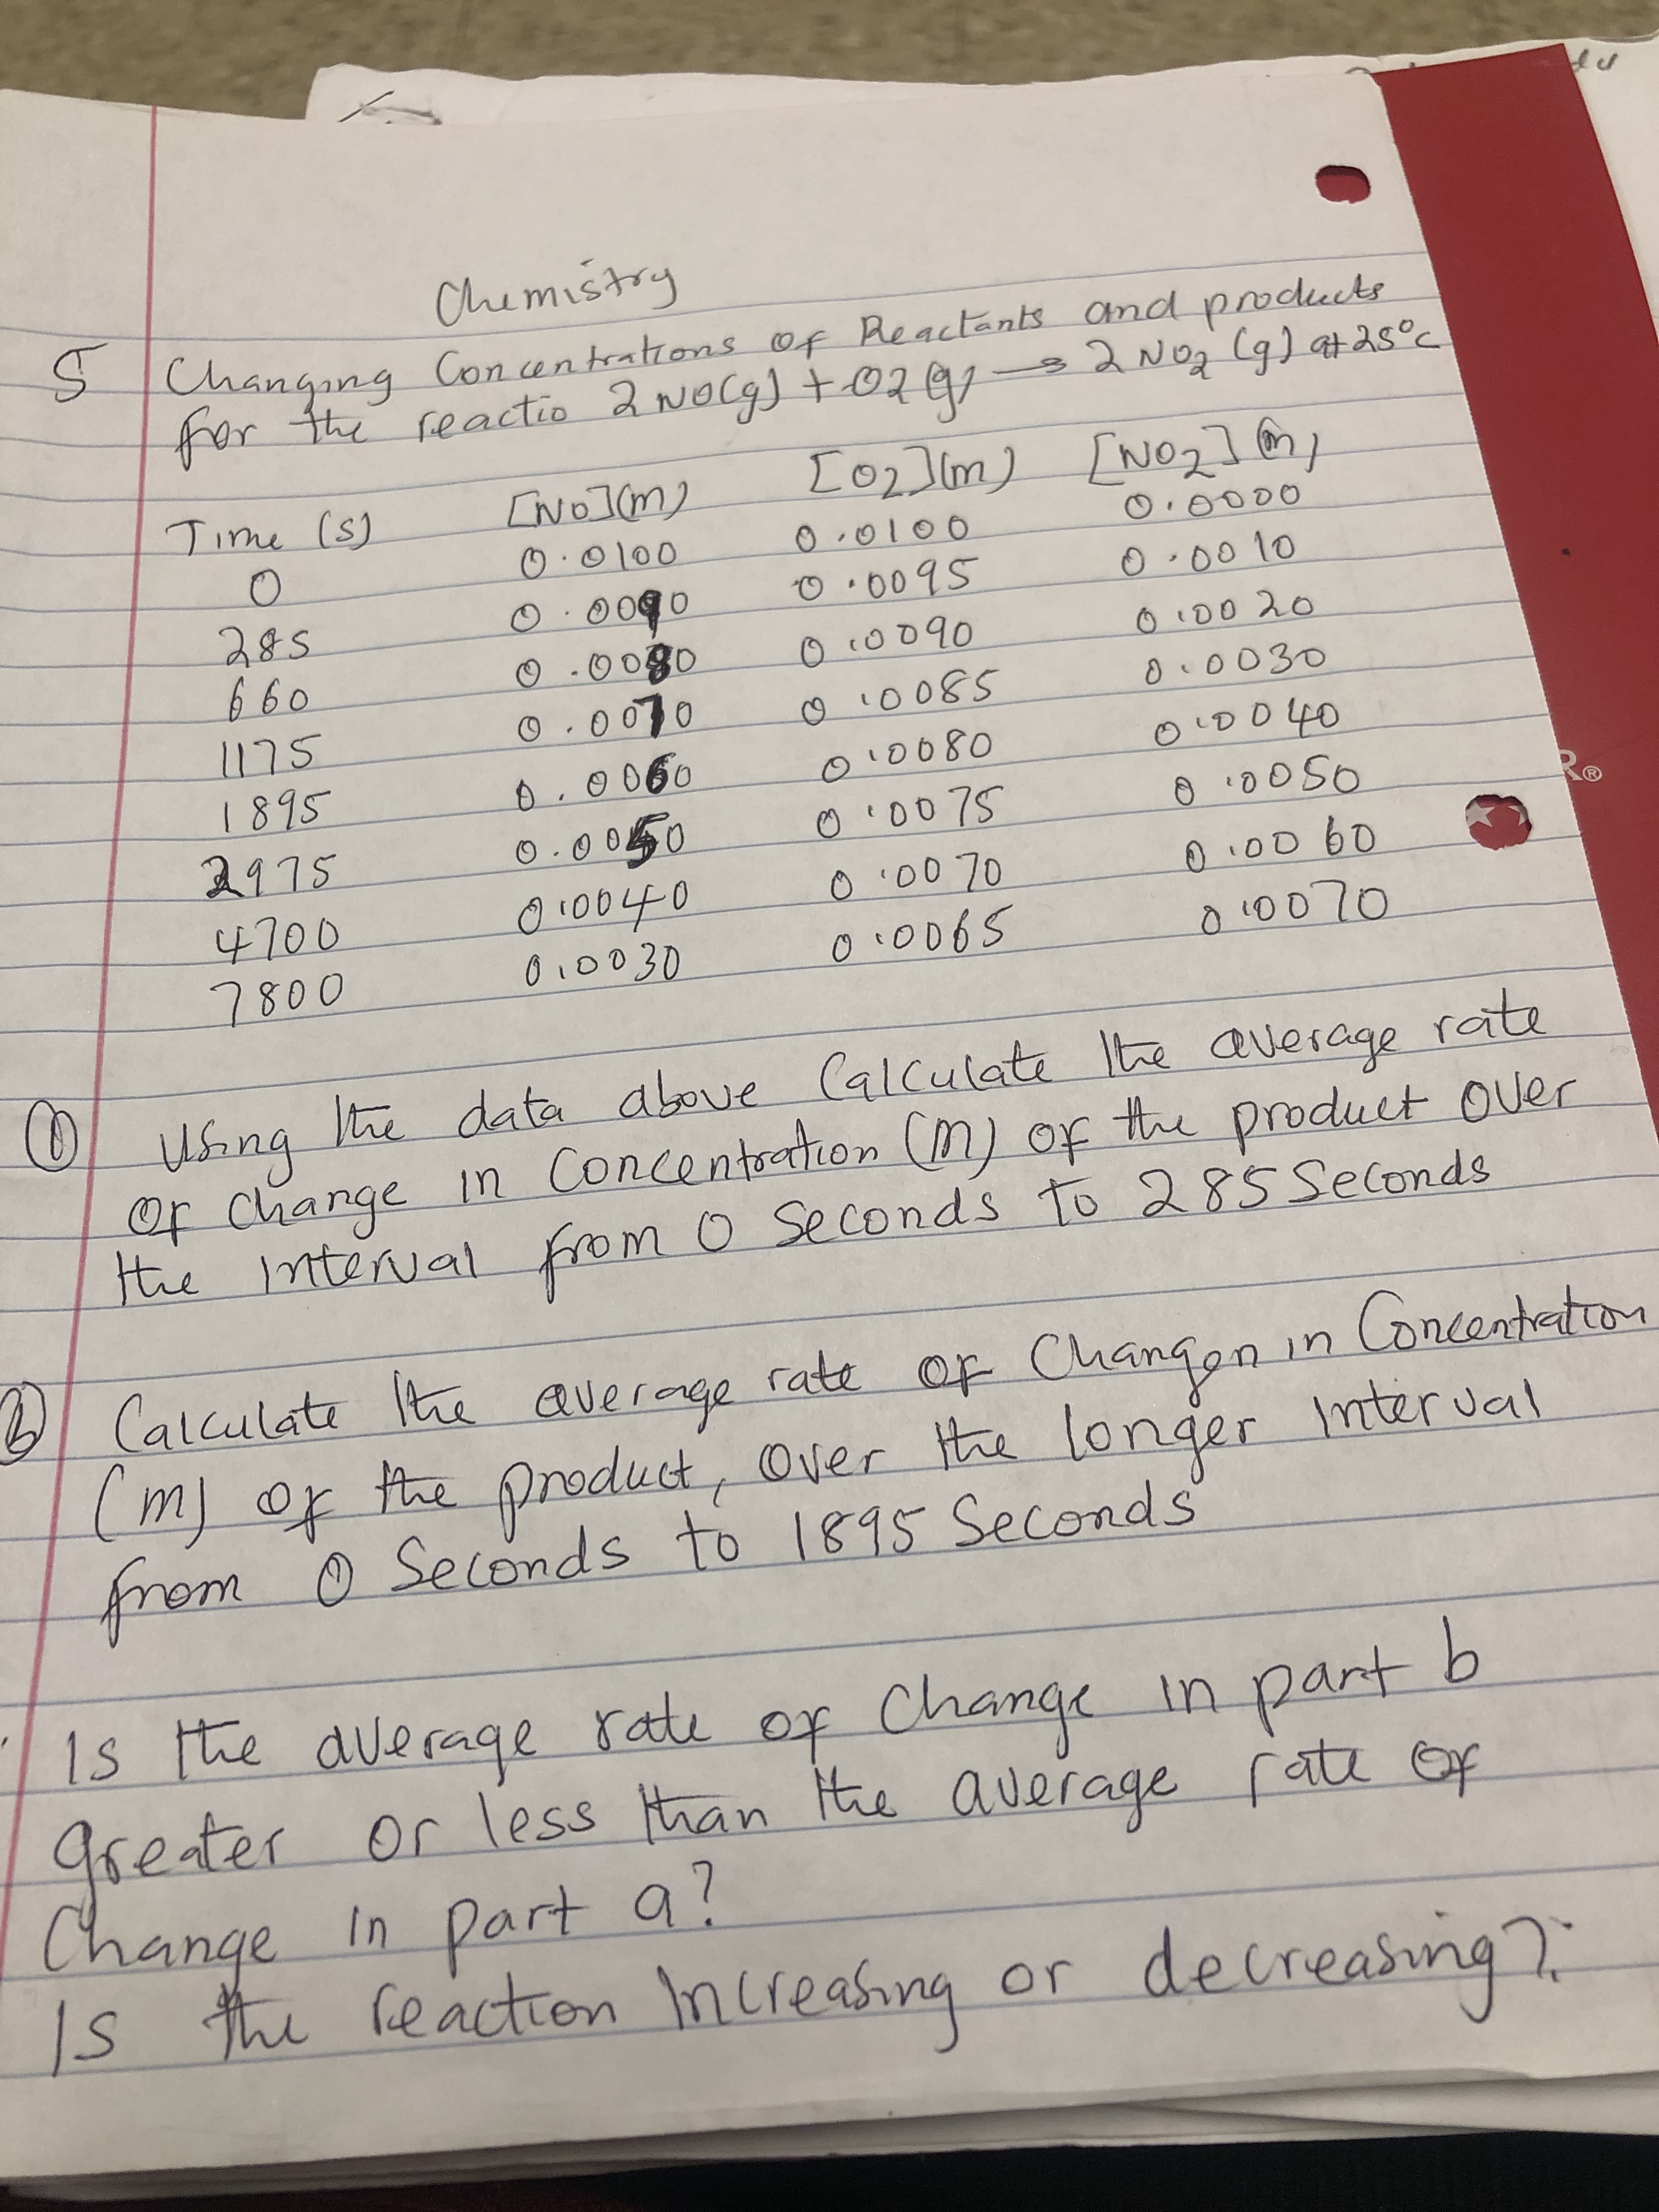 Chemistry
5 Changing Concentrations of Reactants and products
for the reactio 2 NO(g) + O2(g) → 2 NO2 (g) at 25°c
Time (s) [NO](m) [O2](m) [NO2](m)
0 0.0100 0.0100 0.0000
285 0.0090 0.0095 0.0010
660 0.0080 0.0090 0.0020
1175 0.0070 0.0085 0.0030
1895 0.0060 0.0080 0.0040
2975 0.0050 0.0075 0.0050
4700 0.0040 0.0070 0.0060
7800 0.0030 0.0065 0.0070
R®
① Using the data above Calculate the average rate
of change in Concentration (M) of the product over
the interval from 0 Seconds to 285 Seconds
b Calculate the average rate of Changen in Concentration
(m) of the product, over the longer interval
from 0 Seconds to 1895 Seconds
Is the average rate of Change in part b
greater or less than the average rate of
Change in part a?
Is the reaction increasing or decreasing?